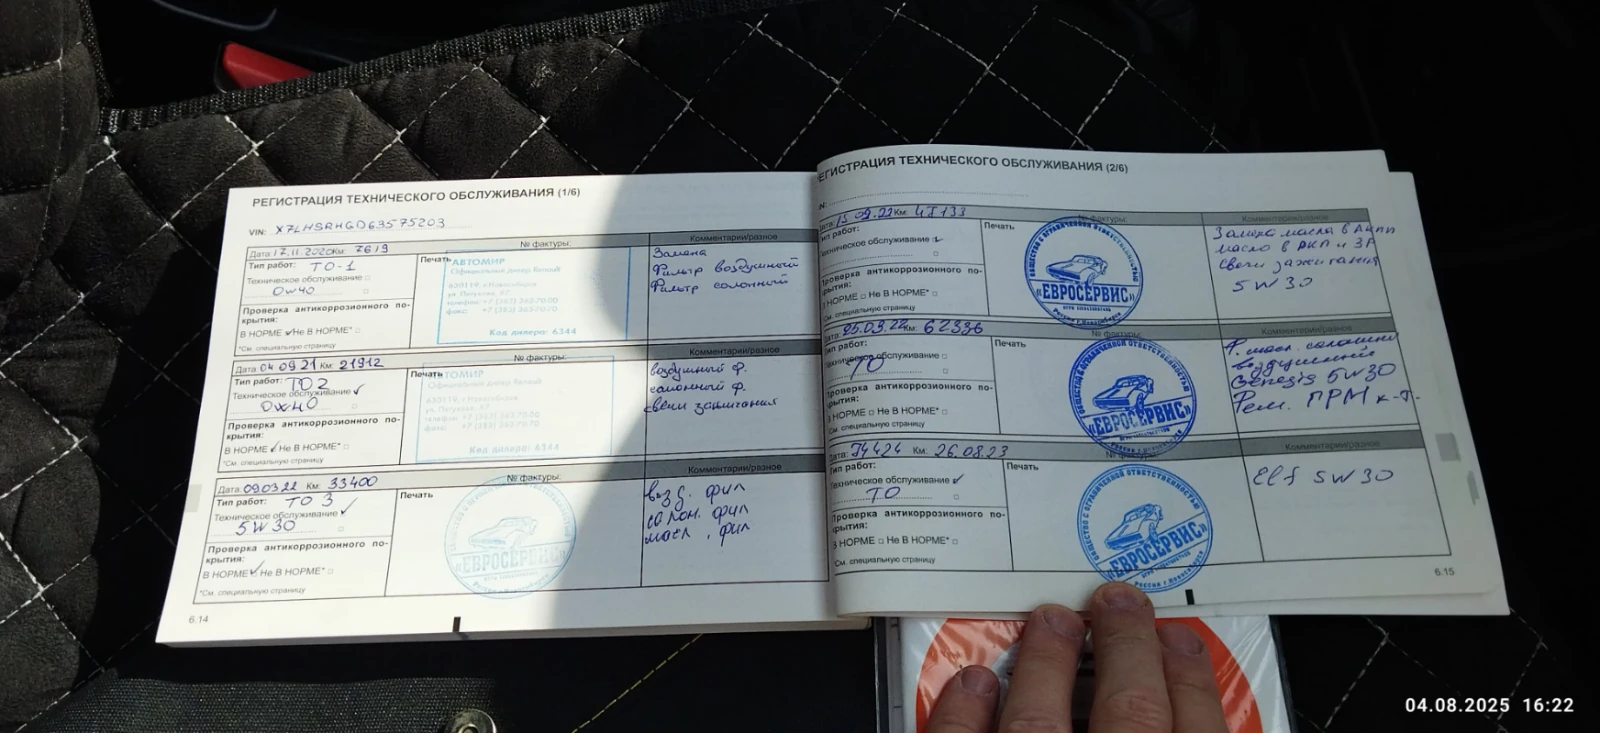 РЕГИСТРАЦИЯ ТЕХНИЧЕСКОГО ОБСЛУЖИВАНИЯ (1/6)
VIN: X7LHSRHGD63575203
Дата: 17.11.2020 Км: 7619
№ фактуры:
Комментарии/разное
Тип работ: ТО-1
Техническое обслуживание □
0w40
Проверка антикоррозионного по-
крытия:
В НОРМЕ ✓ Не В НОРМЕ* □
*См. специальную страницу
Печать
АВТОМИР
Официальный дилер Renault
630119, г.Новосибирск
ул. Петухова,
телефон: +7 (383) 363-70-00
факс: +7 (383) 363-70-70
Код дилера: 6344
Замена
Фильтр воздушный
Фильтр салонный
Дата: 04 09 21 Км: 21912
№ фактуры:
Комментарии/разное
Тип работ: ТО2
Техническое обслуживание ✓
0w40
Проверка антикоррозионного по-
крытия:
В НОРМЕ ✓ Не В НОРМЕ* □
*См. специальную страницу
Печать
ТОМИР
Официальный дилер Renault
630119, г.Новосибирск
Код дилера: 6344
воздушный ф.
салонный ф.
свечи зажигания
Дата: 09.03.22 Км: 33400
№ фактуры:
Комментарии/разное
Тип работ: ТО 3
Техническое обслуживание ✓
5W30 □
Проверка антикоррозионного по-
крытия:
В НОРМЕ ✓ Не В НОРМЕ* □
*См. специальную страницу
Печать
«ЕВРОСЕРВИС»
возд. фил
салон. фил
масл. фил
6.14
ЕГИСТРАЦИЯ ТЕХНИЧЕСКОГО ОБСЛУЖИВАНИЯ (2/6)
N:
Дата: 15 09.22 Км:
№ фактуры:
Комментарии/разное
Тип работ:
Техническое обслуживание
Проверка антикоррозионного по-
крытия:
В НОРМЕ □ Не В НОРМЕ* □
*См. специальную страницу
Печать
ОБЩЕСТВО С ОГРАНИЧЕННОЙ ОТВЕТСТВЕННОСТЬЮ
«ЕВРОСЕРВИС»
Россия г.Новосибирск
Замена масла в Акпп
масло в РКП и ЗР
Свечи зажигания
5W30
25.03.22 Км: 62336
№ фактуры:
Комментарии/разное
Тип работ:
Техническое обслуживание □
ТО
Проверка антикоррозионного по-
крытия:
В НОРМЕ □ Не В НОРМЕ* □
*См. специальную страницу
Печать
ОБЩЕСТВО С ОГРАНИЧЕННОЙ ОТВЕТСТВЕННОСТЬЮ
«ЕВРОСЕРВИС»
Россия г.Новосибирск
Ф. масл. салонный
воздушный
Genesis 5W30
Рем. ГРМ к-т.
Дата: 74424 Км: 26.08.23
Комментарии/разное
Тип работ:
Техническое обслуживание ✓
ТО □
Проверка антикоррозионного по-
крытия:
В НОРМЕ □ Не В НОРМЕ* □
*См. специальную страницу
Печать
ОБЩЕСТВО С ОГРАНИЧЕННОЙ ОТВЕТСТВЕННОСТЬЮ
«ЕВРОСЕРВИС»
Россия г.Новосибирск
Elf 5W30
6.15
04.08.2025 16:22